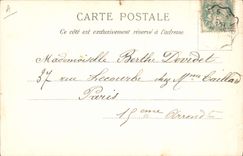 CARTE POSTALE
Ce côté est exclusivement réservé à l'adresse
Mademoiselle Berthe Dovidet
37 rue Lecourbe chez Mme Caillard
Paris
15 eme Arrondt